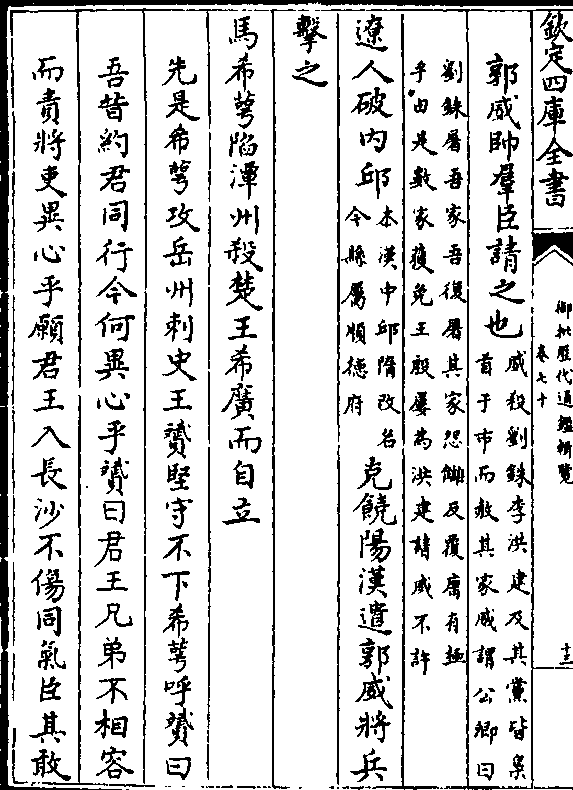 欽定四庫全書
御批歷代通鑑輯覽
卷七十
十三
郭威帥羣臣請之也
威殺劉銖李洪建及其黨皆梟
首于市而赦其家威謂公卿曰
劉銖屠吾家吾復屠其家怨讎反覆庸有極
乎由是數家獲免王殷屢為洪建請威不許
遼人破内邱
本漢中邱隋改名
今縣屬順德府
克饒陽漢遣郭威將兵
擊之
馬希萼陷潭州殺楚王希廣而自立
先是希萼攻岳州刺史王贇堅守不下希萼呼贇曰
吾昔約君同行今何異心乎贇曰君王兄弟不相容
而責將吏異心乎願君王入長沙不傷同氣臣其敢